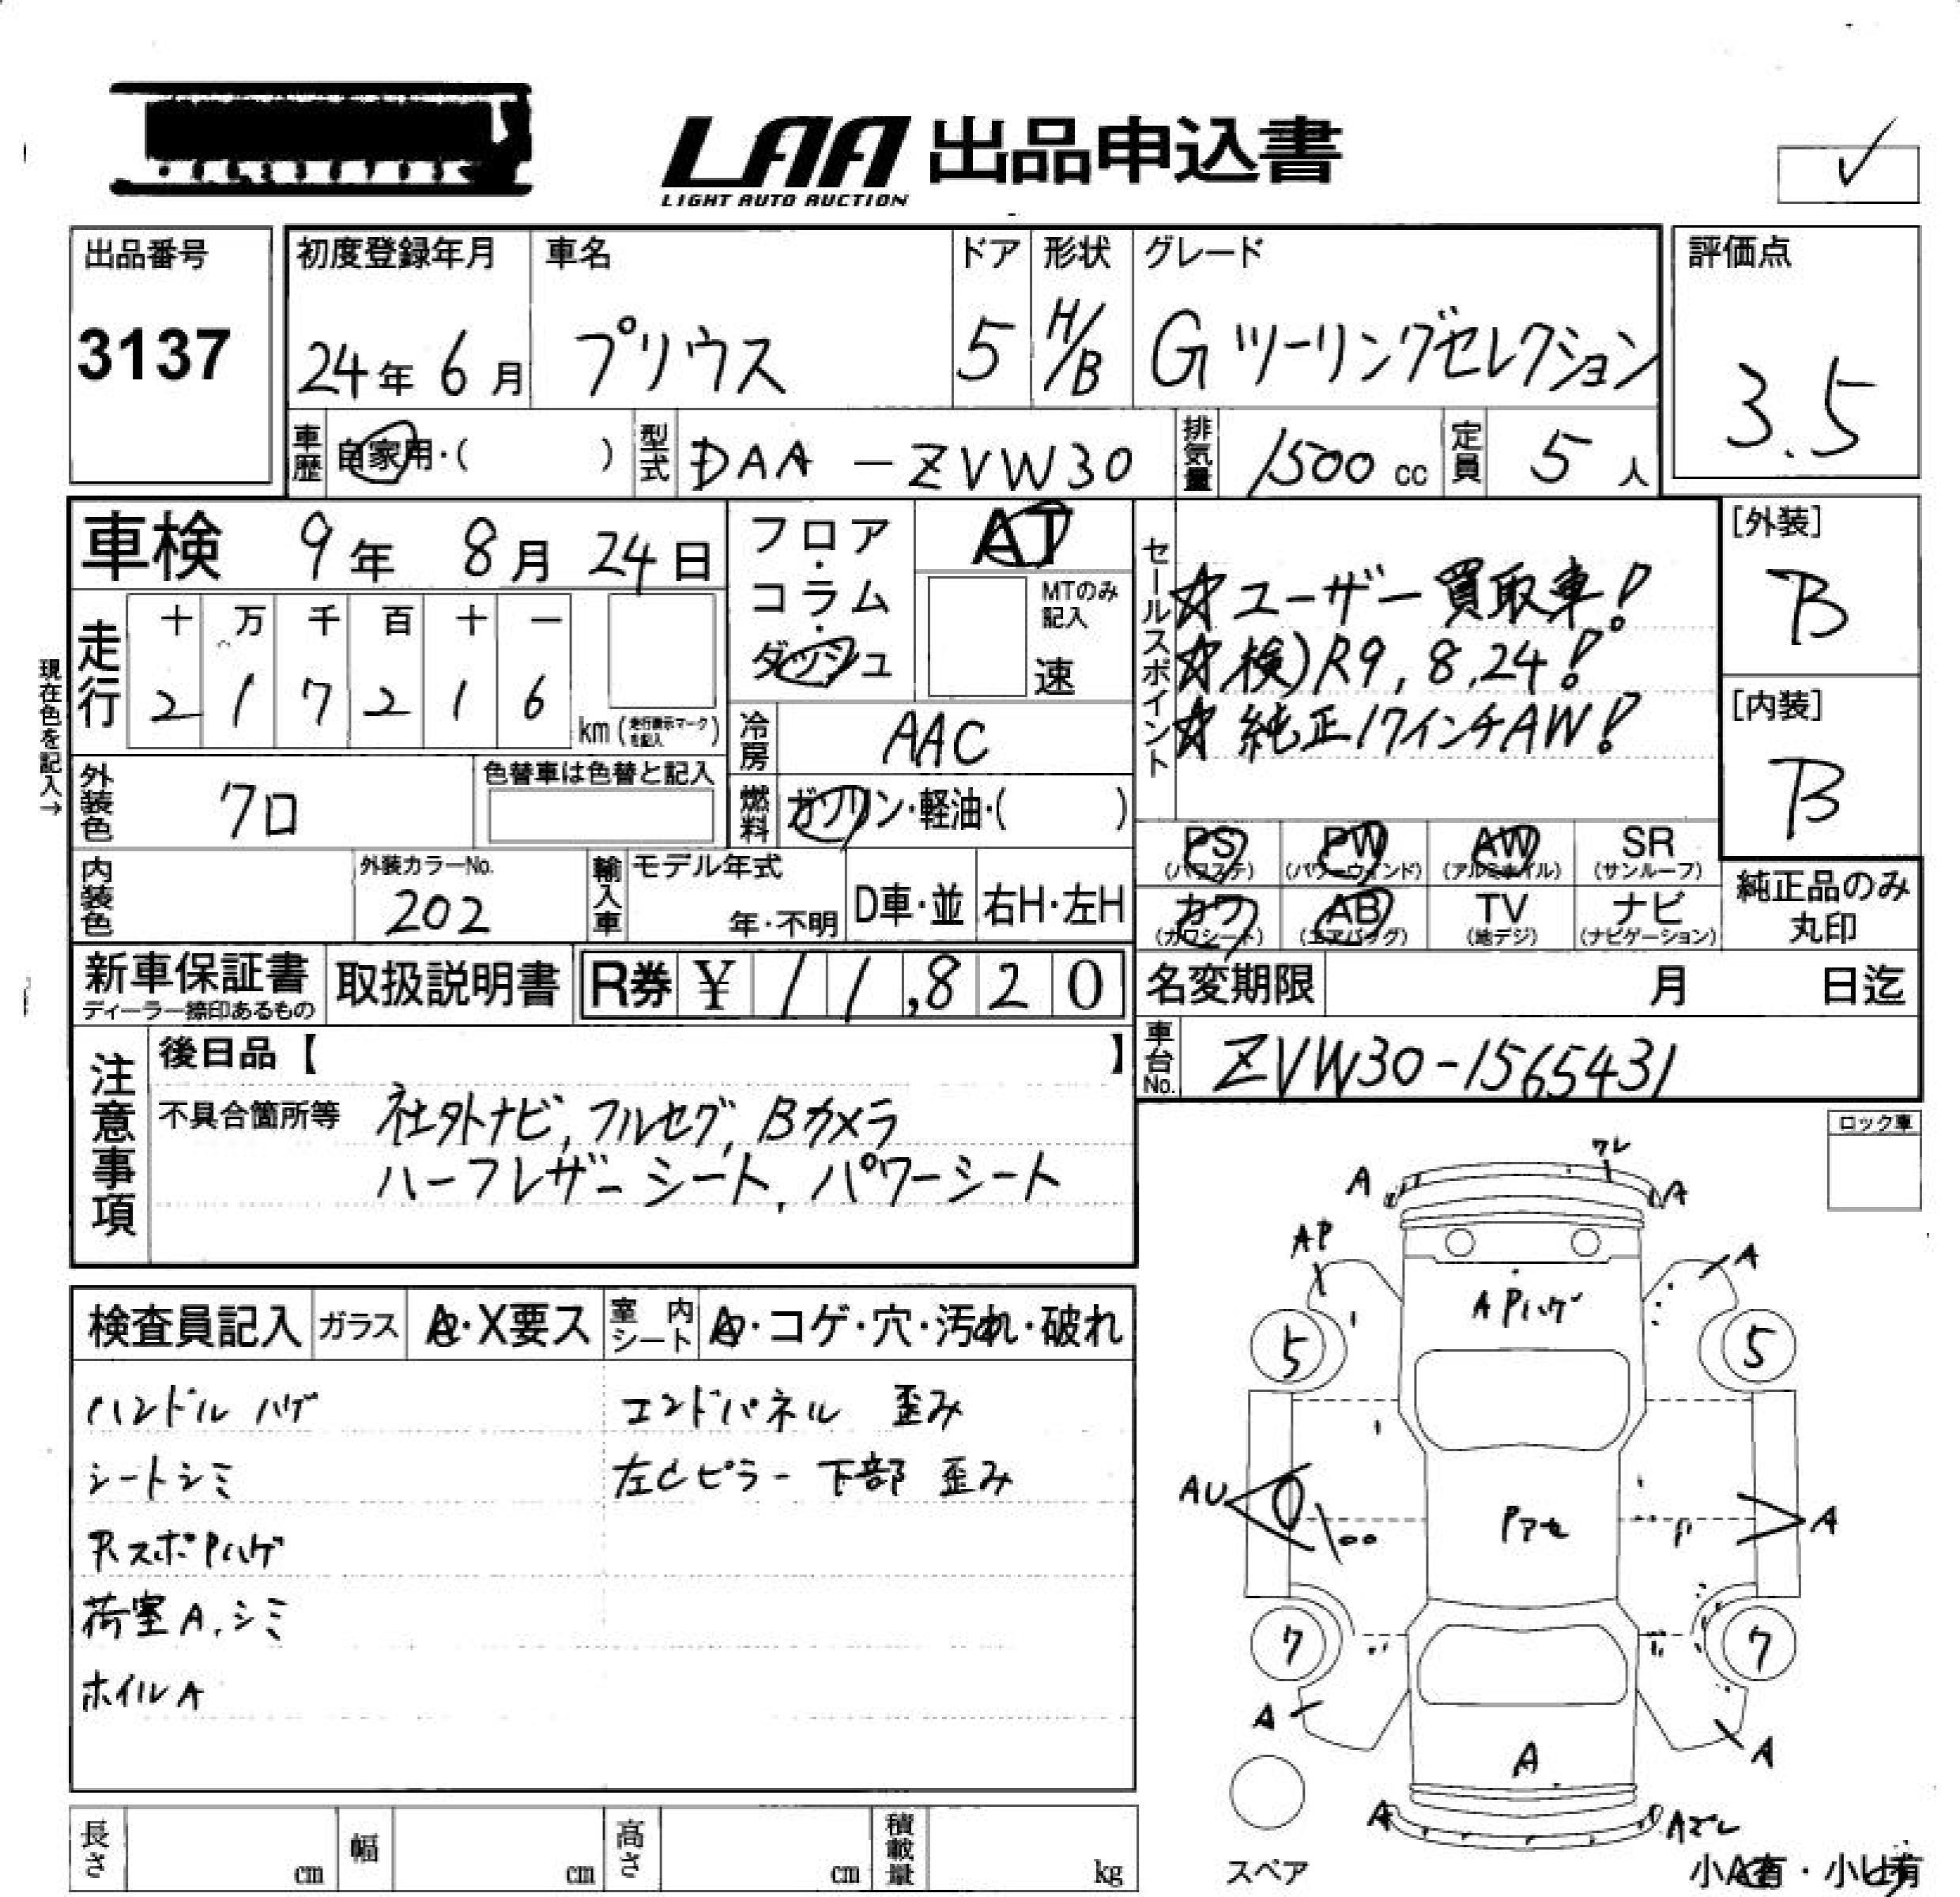 LAA 出品申込書
LIGHT AUTO AUCTION
出品番号
3137
初度登録年月
24年 6月
車名
プリウス
ドア
5
形状
H/B
グレード
Gツーリングセレクション
評価点
3.5
車歴 自家用・( )
型式 DAA-ZVW30
排気量 1500 cc
定員 5人
車検 9年 8月 24日
現在色を記入→
走行
十 万 千 百 十 一
2 1 7 2 1 6
km (走行表示マークを記入)
フロア・コラム・ダッシュ
AT
MTのみ記入
速
冷房 AAC
燃料 ガソリン・軽油・( )
外装色 クロ
色替車は色替と記入
内装色
外装カラーNo.
202
輸入車 モデル年式
年・不明
D車・並
右H・左H
セールスポイント
☆ユーザー買取車!
☆検)R9,8,24!
☆純正17インチAW!
[外装]
B
[内装]
B
PS (パワステ)
PW (パワーウィンド)
AW (アルミホイル)
SR (サンルーフ)
カワ (カワシート)
AB (エアバッグ)
TV (地デジ)
ナビ (ナビゲーション)
純正品のみ丸印
新車保証書
ディーラー捺印あるもの
取扱説明書
R券 ¥ 11,820
名変期限 月 日迄
車台No. ZVW30-1565431
注意事項
後日品【 】
不具合箇所等
社外ナビ,フルセグ,Bカメラ
ハーフレザーシート,パワーシート
ロック車
検査員記入
ガラス A・X要ス
室内シート
・コゲ・穴・汚れ・破れ
ハンドル ハゲ
シートシミ
RスポPハゲ
荷室A,シミ
ホイルA
エンドパネル 歪み
左Cピラー下部 歪み
ワレ
A
A
AP
A
APハゲ
5
5
AU
Pアセ
A
7
7
A
A
A
A
Aズレ
スペア
小A有・小U有
長さ cm
幅 cm
高さ cm
積載量 kg